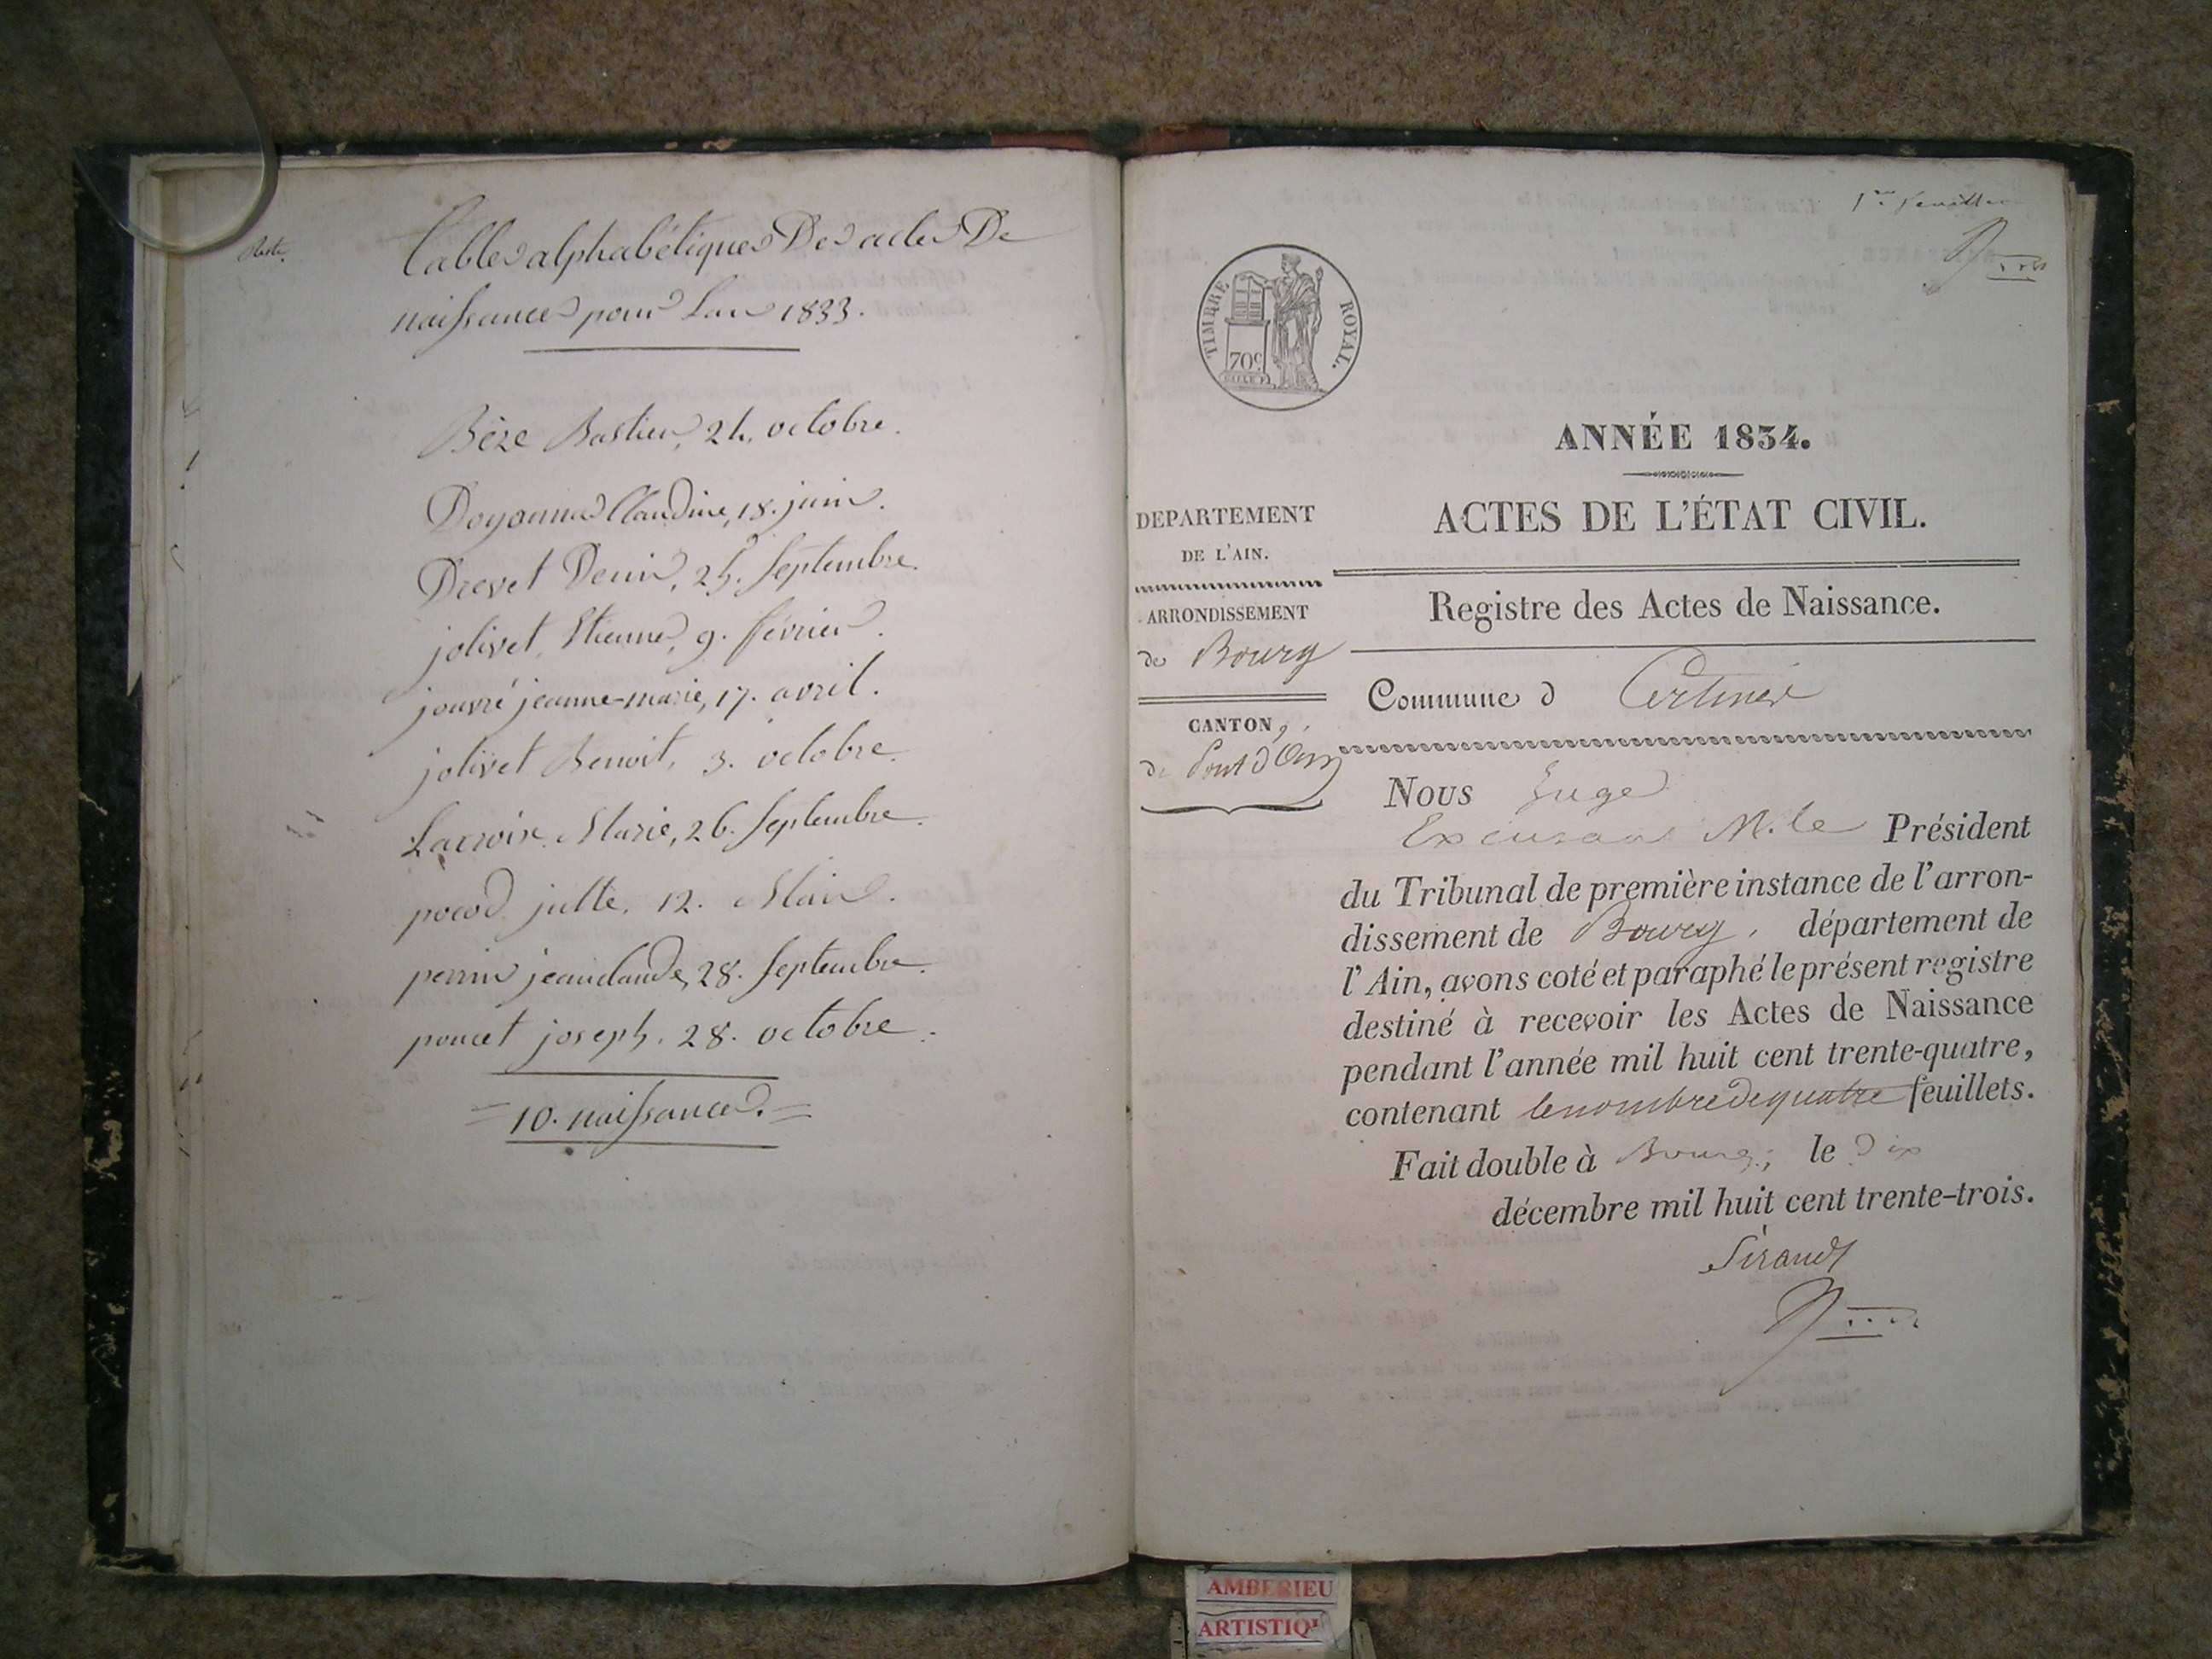 Tables alphabétiques Des actes De
naissances pour L'an 1833.
Bèze Bastien, 24. octobre.
Doyonnas Claudine, 18. juin.
Drevet Denis, 25. Septembre.
jolivet Etienne, 9. février.
jouvré jeanne-marie, 17. avril.
jolivet Benoit, 3. octobre.
Lacroix Marie, 26. Septembre.
pocod julie, 12. Mars.
perrin jean claude, 28. Septembre.
poncet joseph. 28. octobre.
= 10. naissances. =
1er feuillet
TIMBRE ROYAL.
70c
ANNÉE 1834.
ACTES DE L'ÉTAT CIVIL.
Registre des Actes de Naissance.
DEPARTEMENT
DE L'AIN.
ARRONDISSEMENT
de Bourg
CANTON
de Pont d'Ain
Commune d Certines
Nous Juge
Excusant M. le Président
du Tribunal de première instance de l'arron-
dissement de Bourg, département de
l'Ain, avons coté et paraphé le présent registre
destiné à recevoir les Actes de Naissance
pendant l'année mil huit cent trente-quatre,
contenant le nombre de quatre feuillets.
Fait double à Bourg, le Dix
décembre mil huit cent trente-trois.
Sirand
AMBERIEU
ARTISTIQ